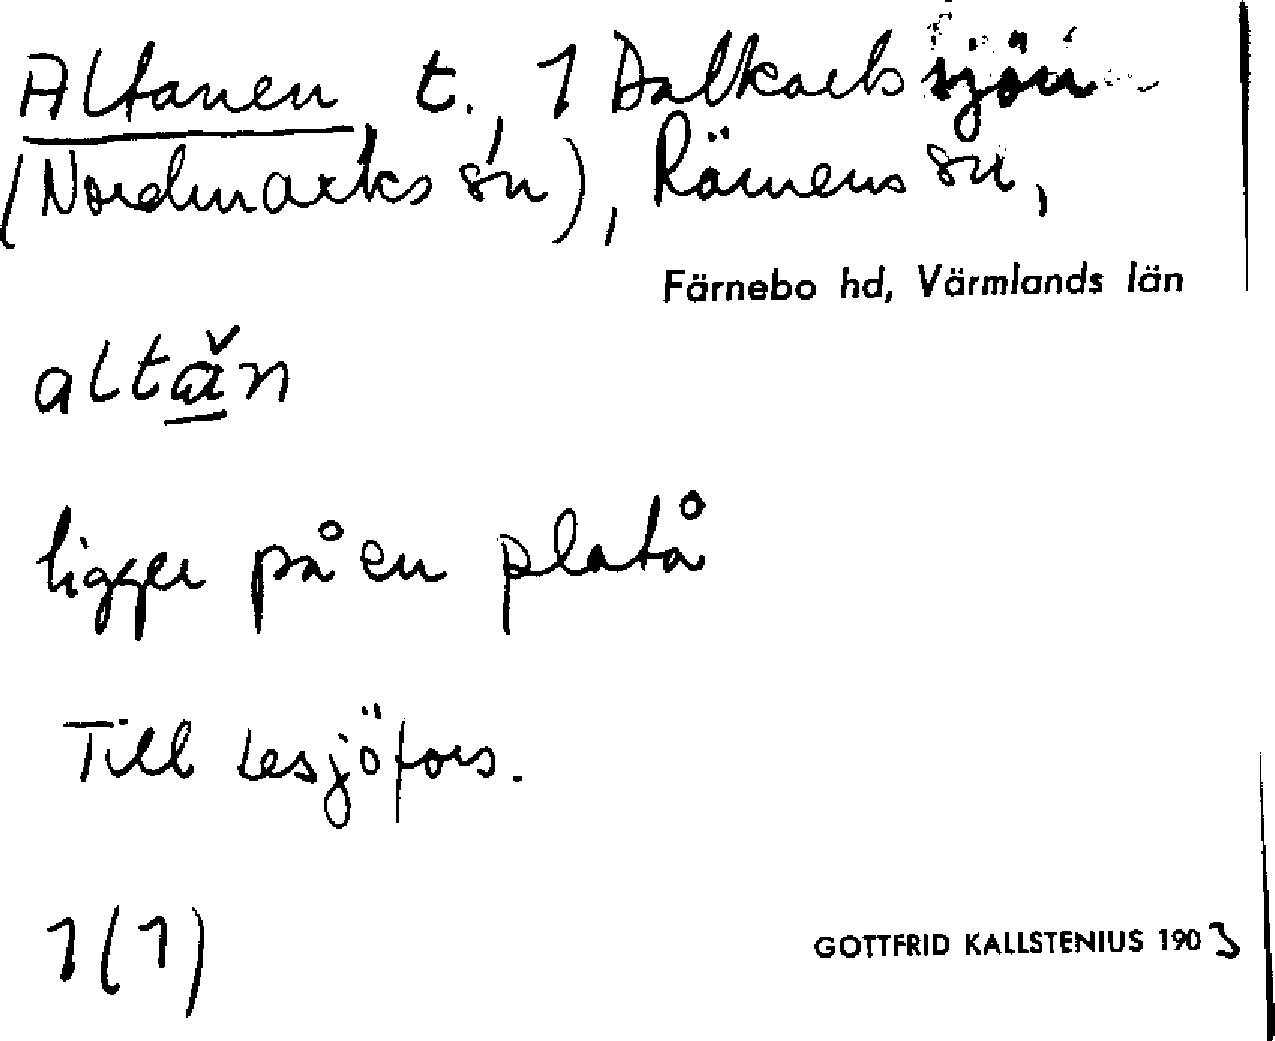 Altanen, t. 1 Dalkarlssjön
(Nordmarks sn), Rämens sn,
Färnebo hd, Värmlands län
altǎn
ligger på en platå
Till Lesjöfors.
1(1)
GOTTFRID KALLSTENIUS 1903